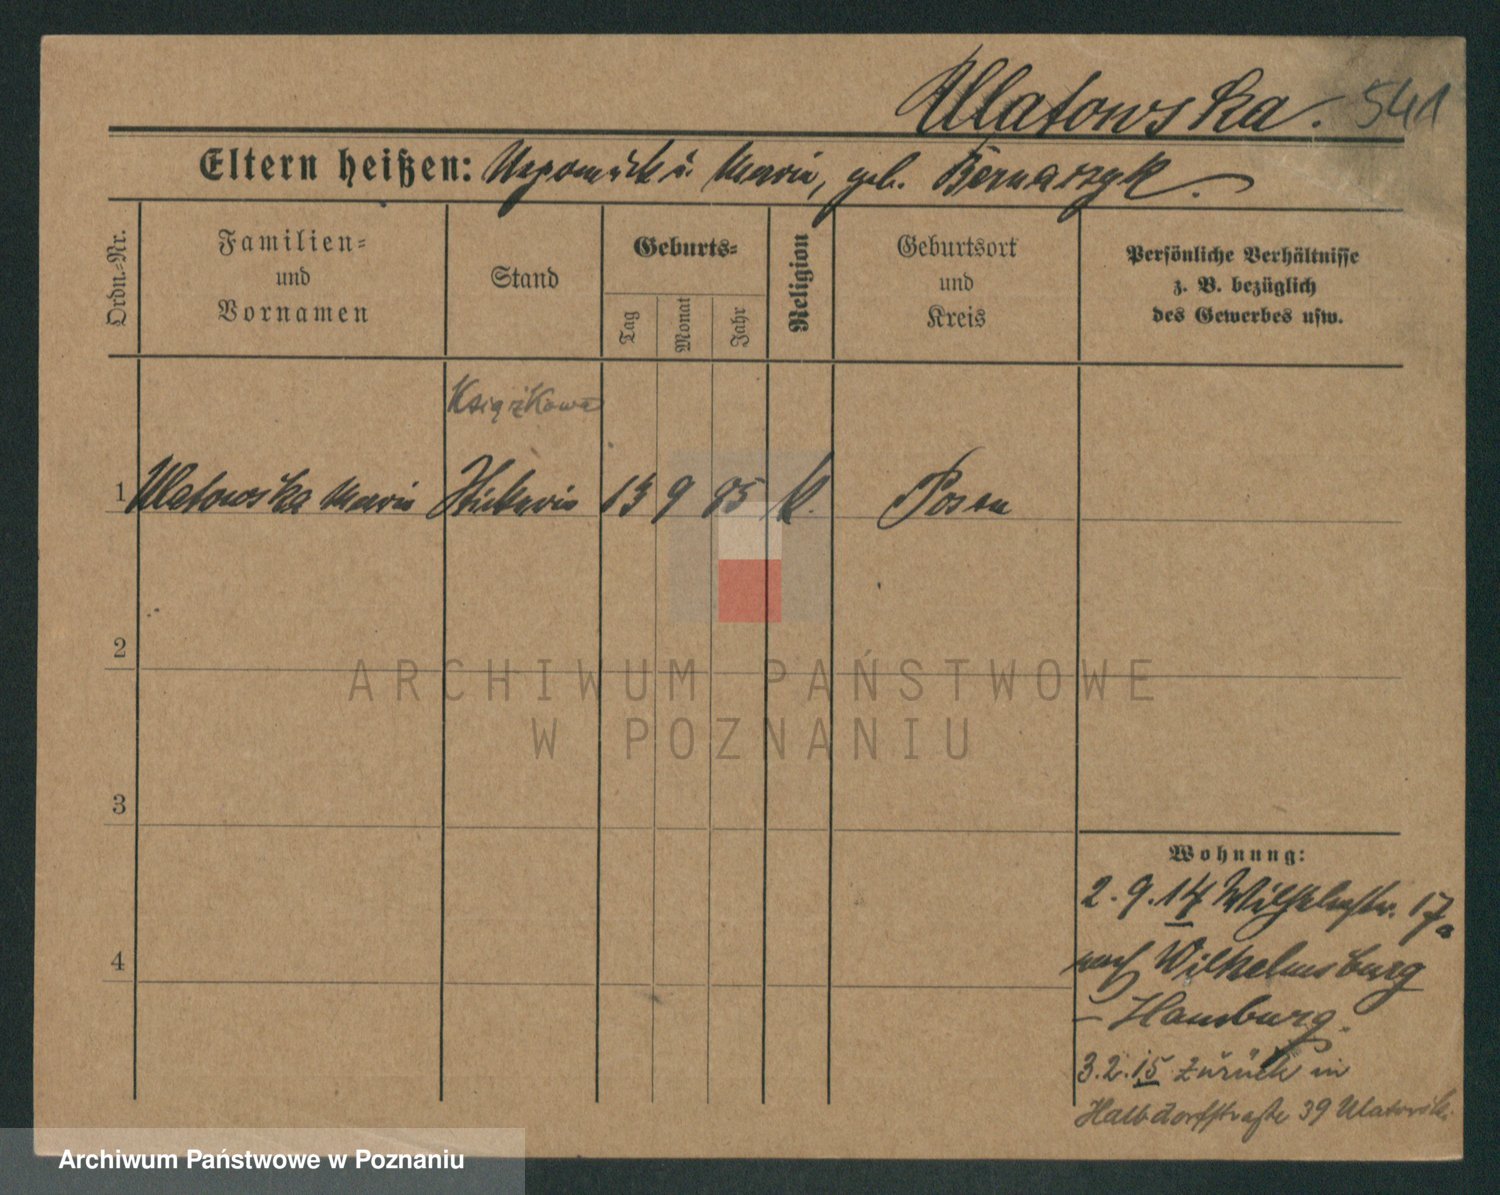 Ulatowska. 541
Eltern heißen: Nepomuk u. Maria, geb. Bernaszyk.
Ordn.-Nr.
Familien-
und
Vornamen
Stand
Geburts-
Tag
Monat
Jahr
Religion
Geburtsort
und
Kreis
Persönliche Verhältnisse
z. B. bezüglich
des Gewerbes usw.
Książkowa
1 Ulatowska Maria 13 9 95 k. Posen
2
3
4
ARCHIWUM PAŃSTWOWE
W POZNANIU
Wohnung:
2.9.14 Wilhelmstr. 17a
nach Wilhelmsburg
– Hamburg.
3.2.15 zurück in
Halbdorfstraße 39 Ulatowski
Archiwum Państwowe w Poznaniu